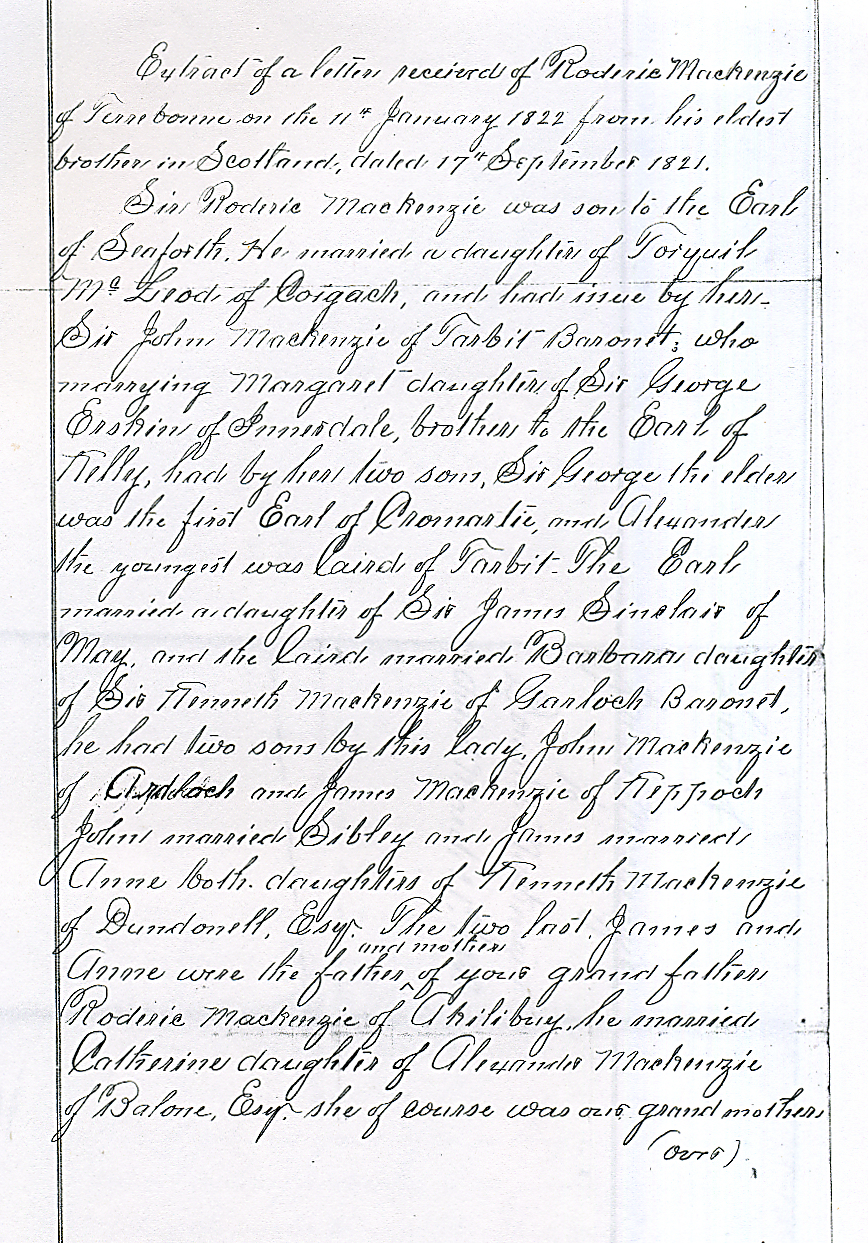 Extract of a letter received of Roderic Mackenzie
of Terrebonne on the 11th January 1822 from his eldest
brother in Scotland, dated 17th September 1821.
Sir Roderic Mackenzie was son to the Earl
of Seaforth. He married a daughter of Torquil
Mc Leod of Coigach, and had issue by her
Sir John Mackenzie of Tarbit Baronet; who
marrying Margaret daughter of Sir George
Erskin of Innerdale, brother to the Earl of
Kelly, had by her two sons, Sir George the elder
was the first Earl of Cromartie, and Alexander
the youngest was Laird of Tarbit - The Earl
married a daughter of Sir James Sinclair of
May, and the Laird married Barbara daughter
of Sir Kenneth Mackenzie of Garloch Baronet,
he had two sons by this lady, John Mackenzie
of Ardloch and James Mackenzie of Keppoch
John married Sibley and James married
Anne both daughters of Kenneth Mackenzie
of Dundonell, Esqr. The two last, James and
and mother
Anne were the father ^ of your grand father
Roderic Mackenzie of Akilibuy, he married
Catherine daughter of Alexander Mackenzie
of Balone, Esqr. she of course was our grand mother
(over)